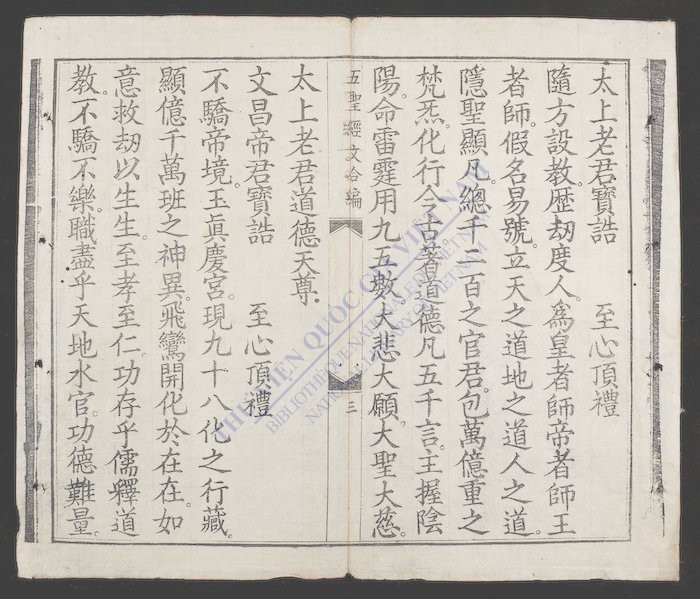 太上老君寶誥　　至心頂禮
隨方設教。歷刼度人。爲皇者師帝者師王
者師。假名易號。立天之道地之道人之道
隱聖顯凡。總千二百之官君。包萬億重之
梵炁。化行今古。著道德凡五千言。主握陰
陽。命雷霆用九五數。大悲大願。大聖大慈。
五聖經文合編
三
太上老君道德天尊.
文昌帝君寶誥　　至心頂禮
不驕帝境。玉眞慶宮。現九十八化之行藏。
顯億千萬班之神異。飛鸞開化於在在。如
意救刼以生生。至孝至仁。功存乎儒釋道
教。不驕不樂。職盡乎天地水官。功德難量。
THƯ VIỆN QUỐC GIA VIỆT NAM
BIBLIOTHÈQUE NATIONALE DU VIETNAM
NATIONAL LIBRARY OF VIETNAM